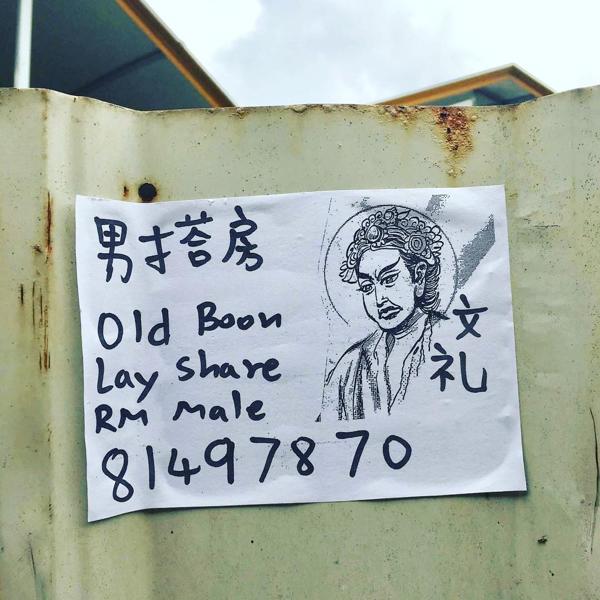 男搭房
Old Boon
Lay Share
RM Male
81497870
文
礼